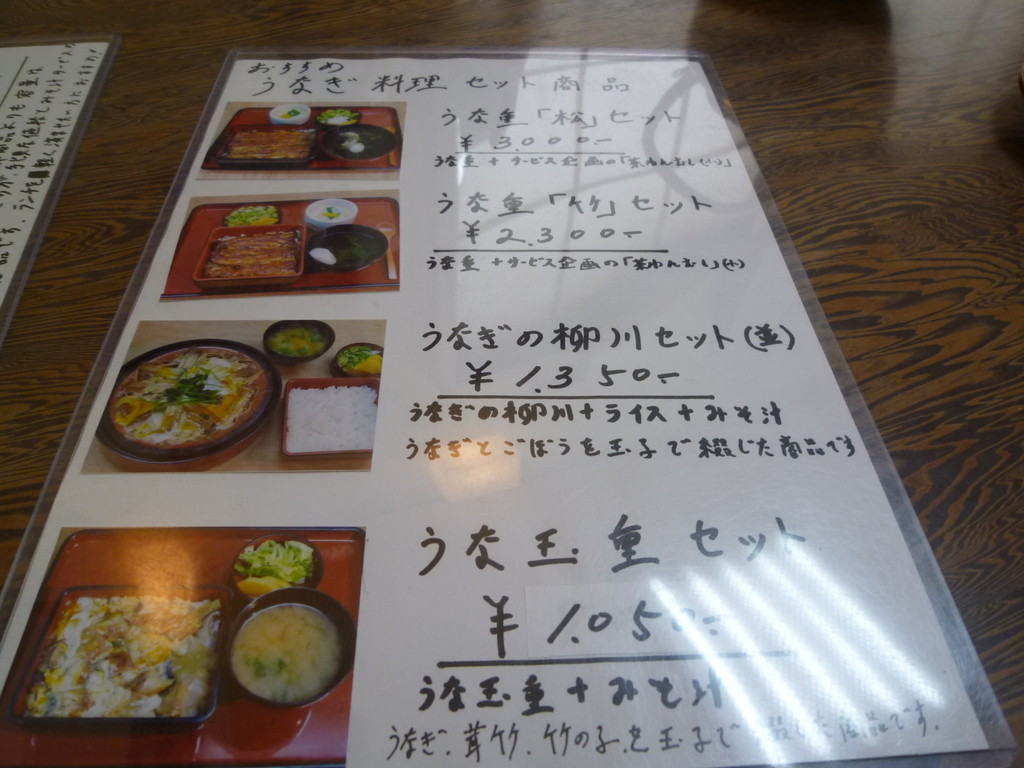 おすすめ
うなぎ 料理 セット 商品
うな重「松」セット
¥ 3,000.-
うな重 + サービス企画の「茶わんむし(小)」
うな重「竹」セット
¥ 2,300.-
うな重 + サービス企画の「茶わんむし」(小)
うなぎの柳川セット(並)
¥ 1,350.-
うなぎの柳川+ライス+みそ汁
うなぎとごぼうを玉子で綴じた商品です
うな玉重セット
¥ 1,050.-
うな玉重+みそ汁
うなぎ、茸竹、竹の子を玉子で綴じた商品です。